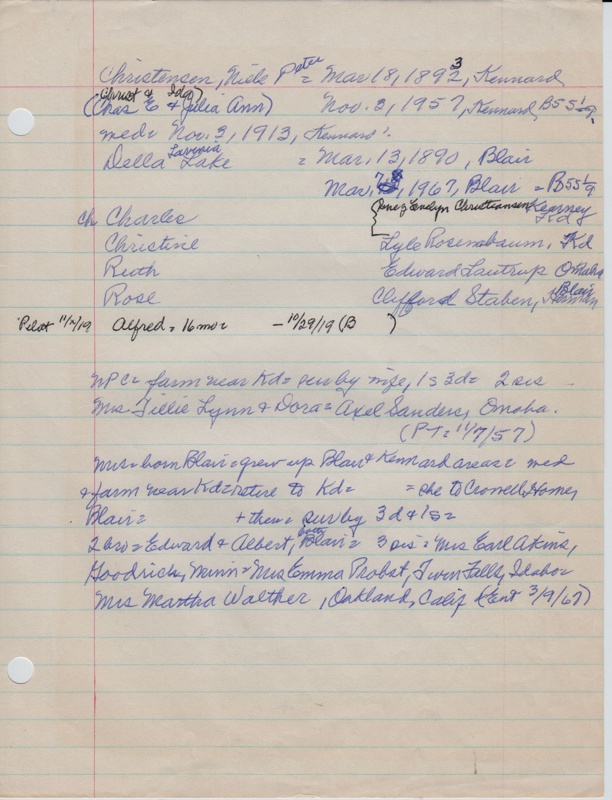 Christensen, Niels Peter = Mar 18, 1892 3, Kennard
(Christ & Ida)
(Chas E & Julia Ann) Nov. 3, 1957, Kennard, B55 1/9
med = Nov. 3, 1913, Kennard
Della Lavinia Lake = Mar. 13, 1890, Blair
Mar. 7, 1967, Blair = B55 1/9
ch Charles {Inez Evelyn Christiansen Kearney Kd
Christine Lyle Rosenbaum, Kd
Ruth Edward Lautrup Omaha
Rose Clifford Staben, Blair Herman
Pilot 11/ /19 Alfred = 16 mo = - 10/29/19 (B )
NPC = farm near Kd = sur by wife, 1s 3d = 2 sis
Mrs Tillie Lynn & Dora = Axel Sanders, Omaha.
(PT = 11/7/57)
Mrs = born Blair = grew up Blair & Kennard areas = med
& farm near Kd = retire to Kd = = she to Crowell Home,
Blair = + then = sur by 3d & 1s =
2 bro = Edward & Albert, both Blair = 3 sis = Mrs Earl Atkins,
Goodrich, Minn = Mrs Emma Probst, Twin Falls, Idaho =
Mrs Martha Walther, Oakland, Calif Ent 3/9/67)